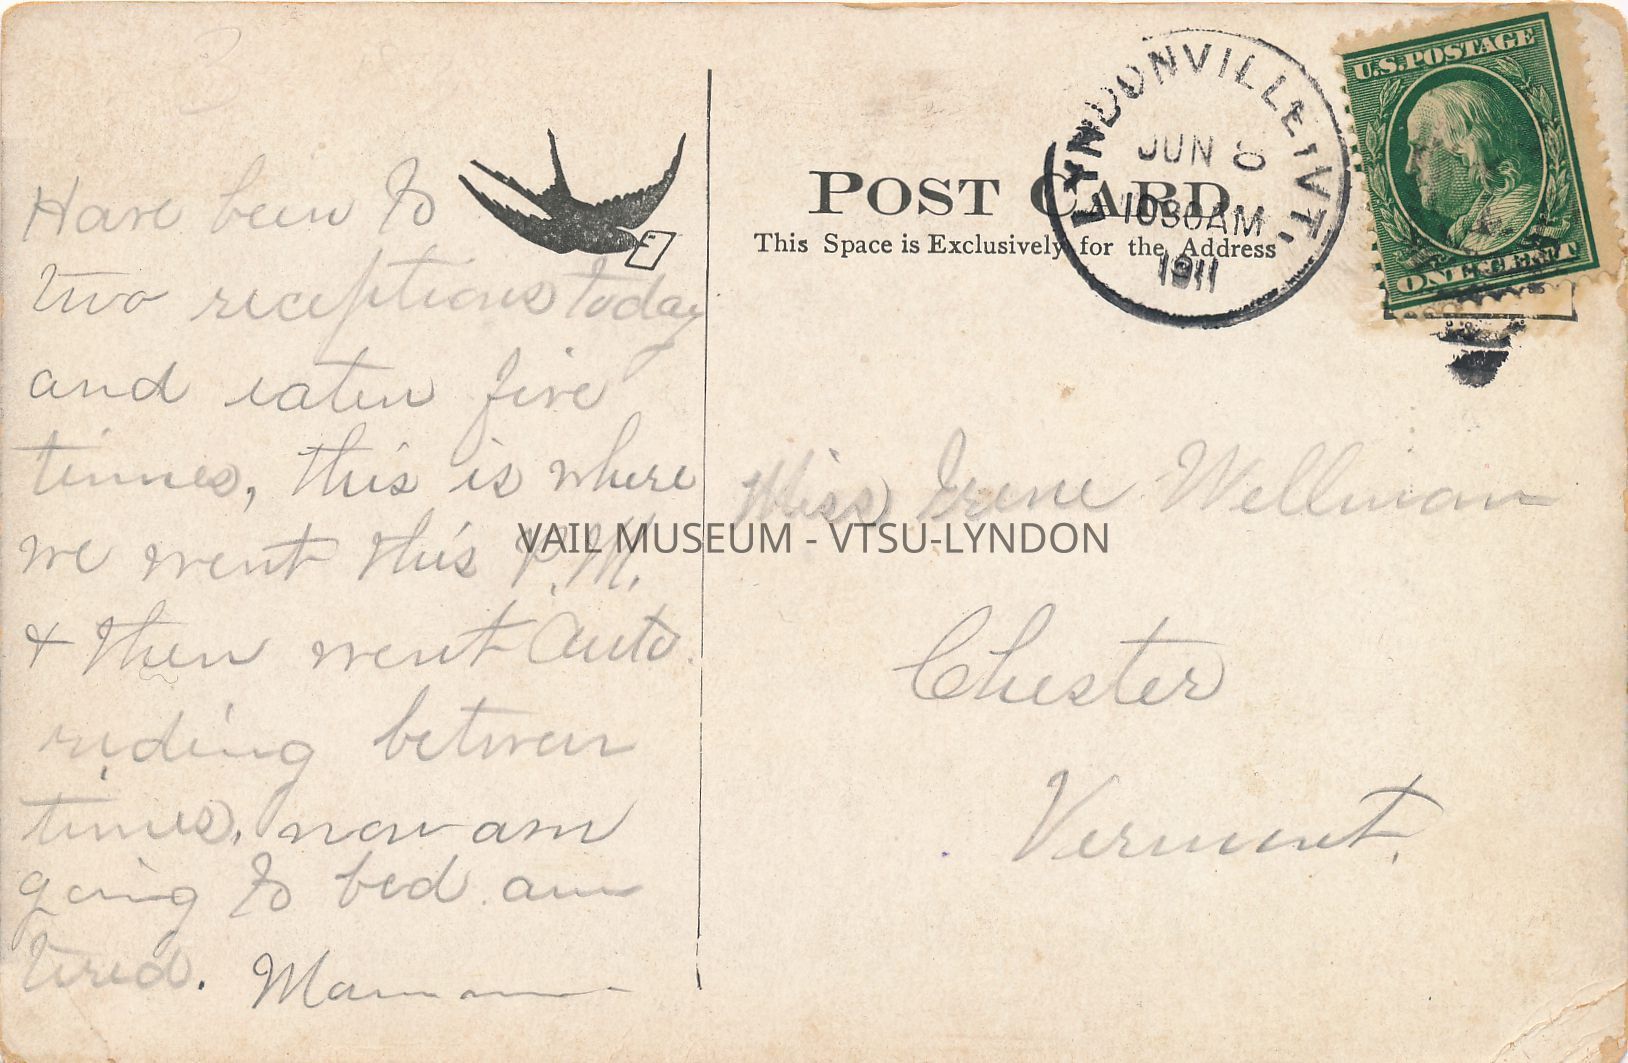 Have been to
two receptions today
and eaten five
times, this is where
we went this P.M.
& then went Auto.
riding between
times, now am
going to bed am
tired. Mamma
POST CARD
This Space is Exclusively for the Address
LYNDONVILLE, VT.
JUN 8
1030AM
1911
U.S. POSTAGE
ONE CENT
Miss Irene Wellman
Chester
Vermont.
VAIL MUSEUM - VTSU-LYNDON